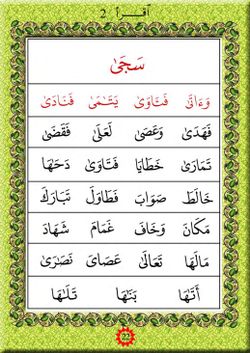 أقرأ 2
سَجَىٰ
وَءَاتَى فَتَاوَىٰ يَتَـٰمَىٰ فَنَادَىٰ
فَهَدَىٰ وَعَصَىٰ لَعَلَىٰ فَقَضَىٰ
تَمَارَىٰ خَطَايَا فَتَاوَىٰ دَحَىٰهَا
خَالَطَ صَوَابَ فَطَاوَلَ تَبَارَكَ
مَكَانَ وَخَافَ غَمَامَ شَهَادَ
مَالَهَا تَعَالَىٰ عَصَاىَ نَصَـٰرَىٰ
أَتَىٰهَا بَنَىٰهَا تَلَىٰهَا
22